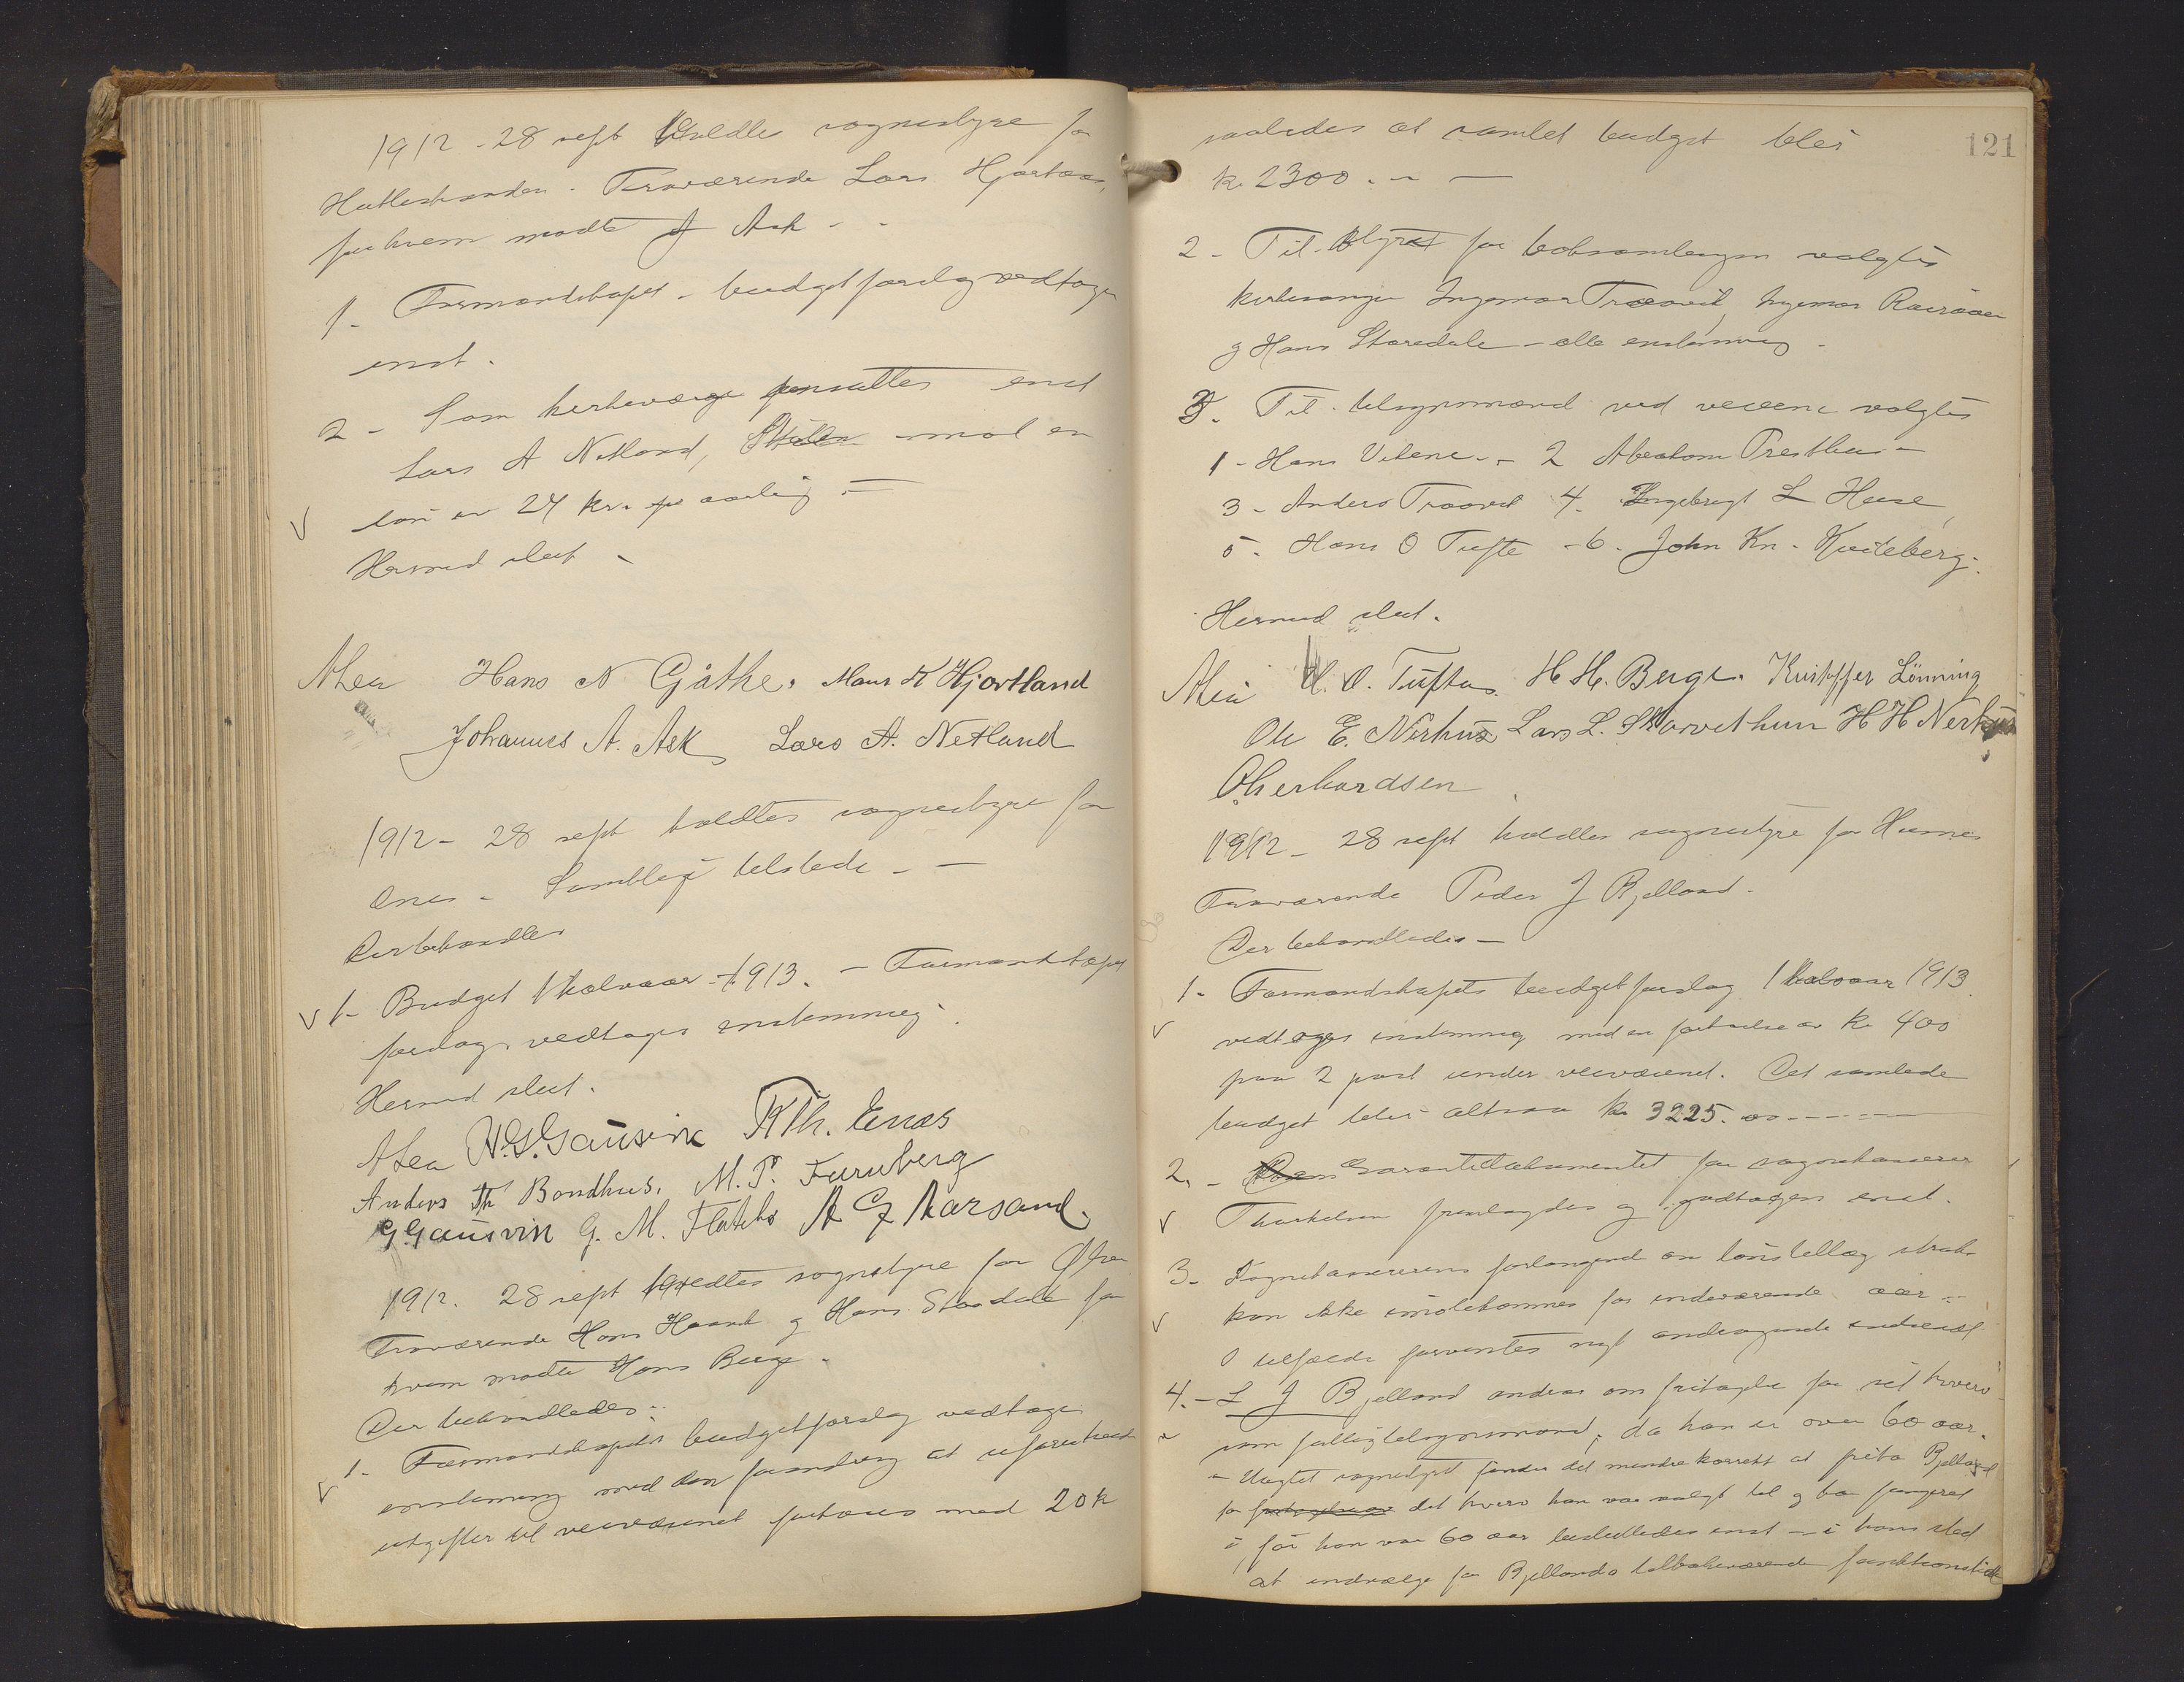 1912 - 28 sept holdtes sognestyre for
Hatlestranden. Fraværende Lars Hjortaas,
for hvem mødte J Ask -
1 - Formandskapet - budgetforslag vedtages
enst.
2 - Som kirkeværge fornsattes enst
Lars A Netland, mot en
løn av 24 kr. aarlig -
Hermed slut -
ALea Hans N Gåthe. Mons K Hjortland
Johannes A. Ask Lars A. Netland
1912 - 28 sept holdtes sognestyre for
Ænes - Samtlige tilstede -
Der behandles
1- Budget 1 halvaar - 1913. - Formandskapets
forslag vedtages enstemmig.
Hermed slut.
ALea H.G.Gausvik K Th. Enæs
Anders Th Bondhus. M. P. Furuberg
G.Gausvik G. M. Flatebø A G Aarsand.
1912. 28 sept holdtes sognestyre for Ølve
Fraværende Hans Haavik og Hans Staadale for
hvem mødte Hans Berge -
Der behandledes -
1 - Formandskapets budgetforslag vedtages
enstemmig med den forandring at uforutseet
utgifter til veivæsenet forhøies med 20 k
121
saaledes at samlet budget blir
kr 2300. -
2 - Til styret for boksamlingen valgtes
kirkesanger Ingemar Træavik, Ingemar
og Hans Staredale - alle enstemmig -
3. Til tilsynsmænd ved veiene valgtes
1 - Hans Vikene - 2 Abraham Presthus -
3 - Anders Traavik 4. Ingebrigt L Huse,
5 - Hans O Tufte - 6. John Kn. Kviteberg.
Hermed slut.
Alea H. O. Tuftas. H H. Berge. Kristoffer Lönning
Ole E. Nerhus Lars L. Skarvethun H H Nerhus
O. Gerhardsen
1912 - 28 sept holdtes sognestyre for Husnes
Fraværende Peder J Bjelland -
Der behandledes -
1 - Formandskapets budgetforslag 1 halvaar 1913
vedtages enstemmig med en forhøielse av kr 400
paa 2 post under veivæsenet. Det samlede
budget blir altsaa kr 3225.00 -
2. - Garantidokumentet for sognekasserer
Thorkelsen fremlagdes og godtages enst.
3 - Sognekassererens forlangende om lønstillæg strak-
kan ikke imøtekommes for indeværende aar -
I tilfælde forventes nyt andragende indsendt
4. - L J Bjelland andrar om fritagelse for sit hverv
som fattigtilsynsmand, da han er over 60 aar.
- Uagtet sognestyret finder det mindre korrekt at frita Bjelland
for det hverv han var valgt til og har fungeret
i, før han var 60 aar besluttedes enst - i hans sted
at indvælge for Bjellands tilbakeværende funktionstid